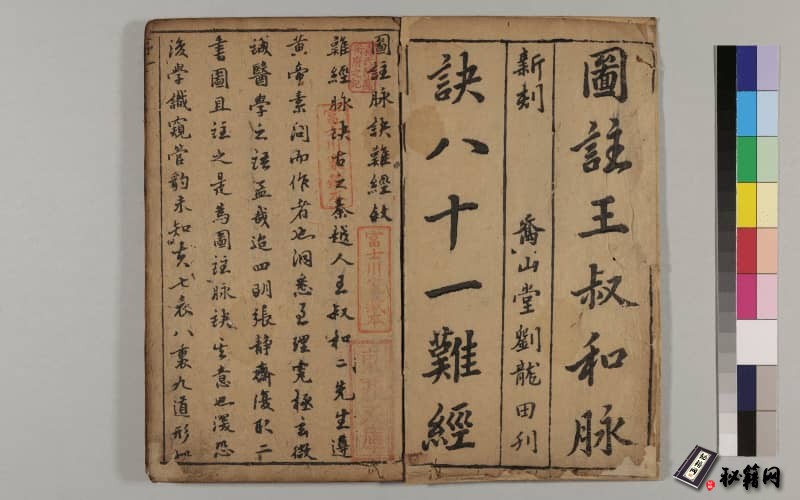 圖註王叔和脉
新刻
喬山堂劉龍田刊
訣八十一難經
圖註脉訣難經敘
難經脉訣古之秦越人王叔和二先生遵
黄帝素問而作者也洞悉至理究極玄微
誠醫學之
四明張静齋復取二
書圖且註之是為圖註脉訣
意也漫恐
後學識窺管豹未知夫七表八裏九道形
富士川家藏本
秘籍网